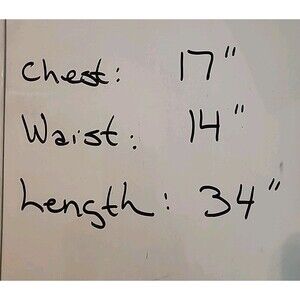 Chest: 17"
Waist: 14"
Length: 34"